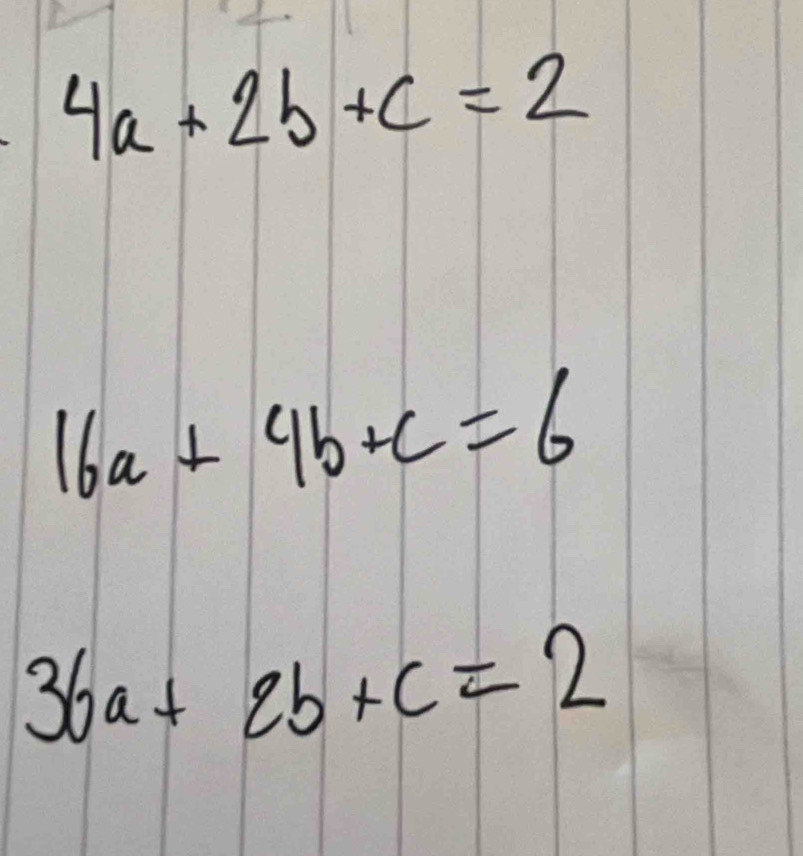 4a + 2b + c = 2
16a + 4b + c = 6
36a + 2b + c = 2